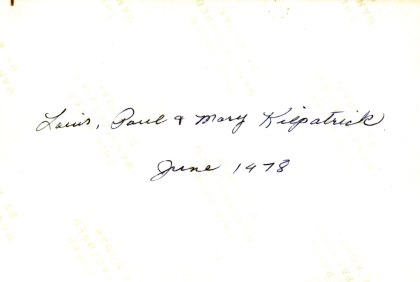 Louis, Paul & Mary Kilpatrick
June 1978